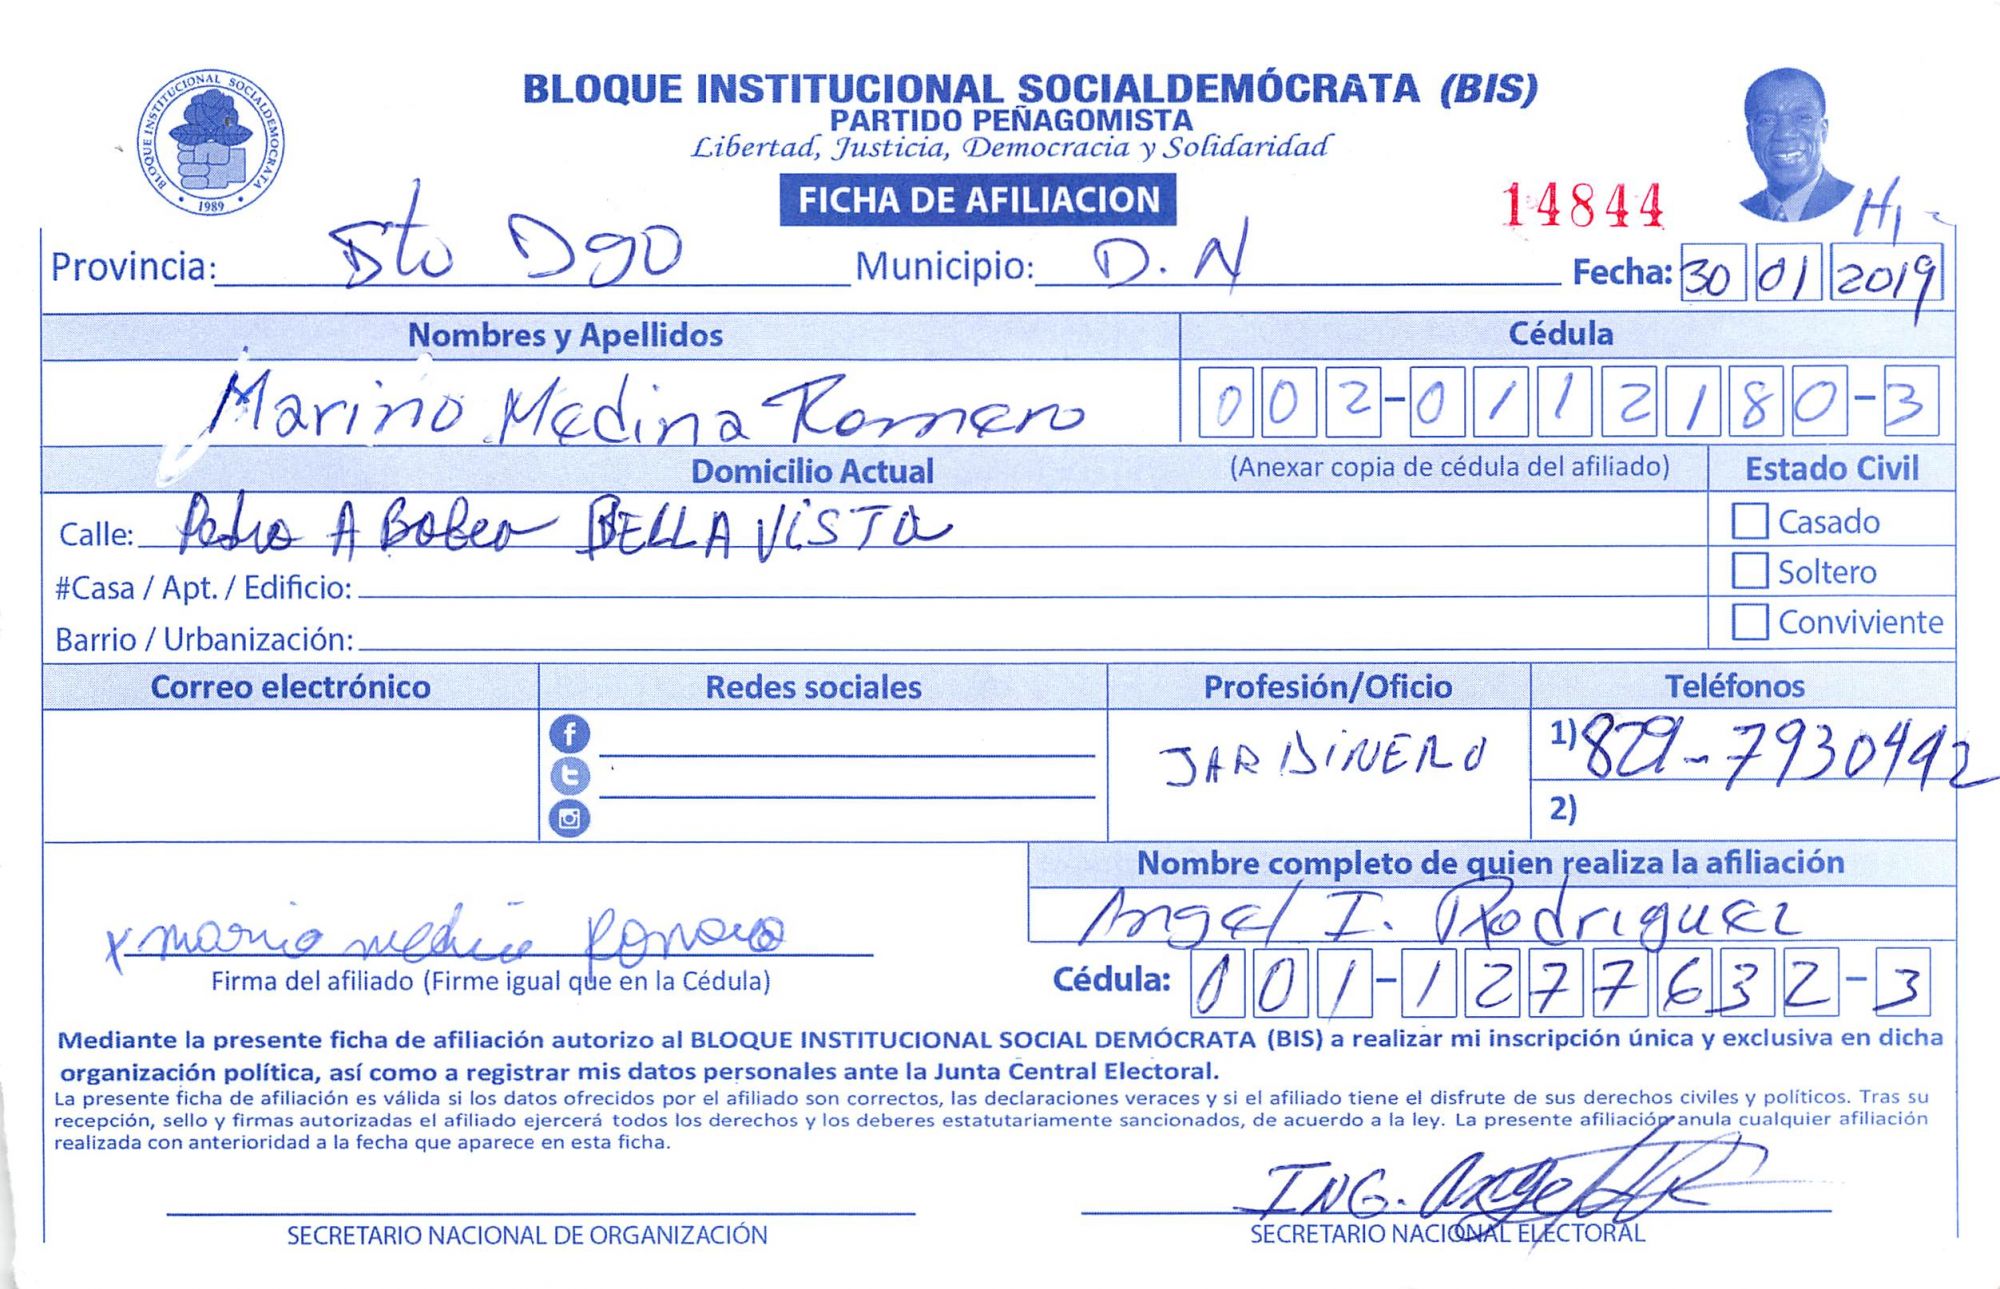 BLOQUE INSTITUCIONAL SOCIALDEMOCRATA
1989
BLOQUE INSTITUCIONAL SOCIALDEMÓCRATA (BIS)
PARTIDO PEÑAGOMISTA
Libertad, Justicia, Democracia y Solidaridad
FICHA DE AFILIACION
14844
Provincia: Sto Dgo Municipio: D. N Fecha: 30 01 2019
Nombres y Apellidos Cédula
Marino Medina Romero 002-0112180-3
Domicilio Actual (Anexar copia de cédula del afiliado) Estado Civil
Calle: Pedro A Bobea BELLA VISTA Casado
#Casa / Apt. / Edificio: Soltero
Barrio / Urbanización: Conviviente
Correo electrónico Redes sociales Profesión/Oficio Teléfonos
JARDINERO 1) 829-7930442
2)
Nombre completo de quien realiza la afiliación
Angel I. Rodriguez
x mario medina Romero
Firma del afiliado (Firme igual que en la Cédula) Cédula: 001-1277632-3
Mediante la presente ficha de afiliación autorizo al BLOQUE INSTITUCIONAL SOCIAL DEMÓCRATA (BIS) a realizar mi inscripción única y exclusiva en dicha
organización política, así como a registrar mis datos personales ante la Junta Central Electoral.
La presente ficha de afiliación es válida si los datos ofrecidos por el afiliado son correctos, las declaraciones veraces y si el afiliado tiene el disfrute de sus derechos civiles y políticos. Tras su
recepción, sello y firmas autorizadas el afiliado ejercerá todos los derechos y los deberes estatutariamente sancionados, de acuerdo a la ley. La presente afiliación anula cualquier afiliación
realizada con anterioridad a la fecha que aparece en esta ficha.
ING.
SECRETARIO NACIONAL DE ORGANIZACIÓN SECRETARIO NACIONAL ELECTORAL